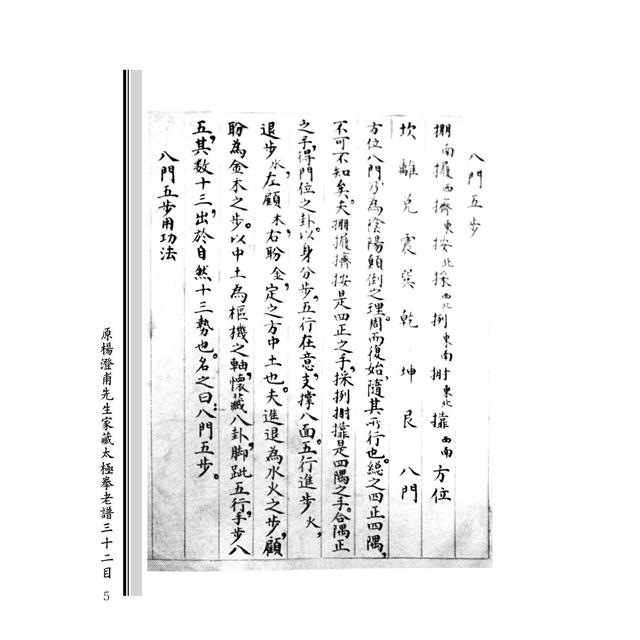 八門五步
掤南 㨇西 擠東 按北 採西北 挒東南 㧒東北 靠西南 方位
坎 離 兌 震 巽 乾 坤 艮 八門
方位八門,乃為陰陽顛倒之理,周而復始,隨其所行也。總之四正四隅,
不可不知矣。夫掤㨇擠按是四正之手,採挒㧒靠是四隅之手。合隅正
之手,得門位之卦。以身分步,五行在意,支撐八面。五行進步火,
退步水,左顧木,右盼金,定之方中土也。夫進退為水火之步,顧
盼為金木之步。以中土為樞機之軸,懷藏八卦,脚跐五行,手步八
五,其數十三,出於自然十三勢也。名之曰:八門五步。
八門五步用功法
原楊澄甫先生家藏太極拳老譜三十二目
5